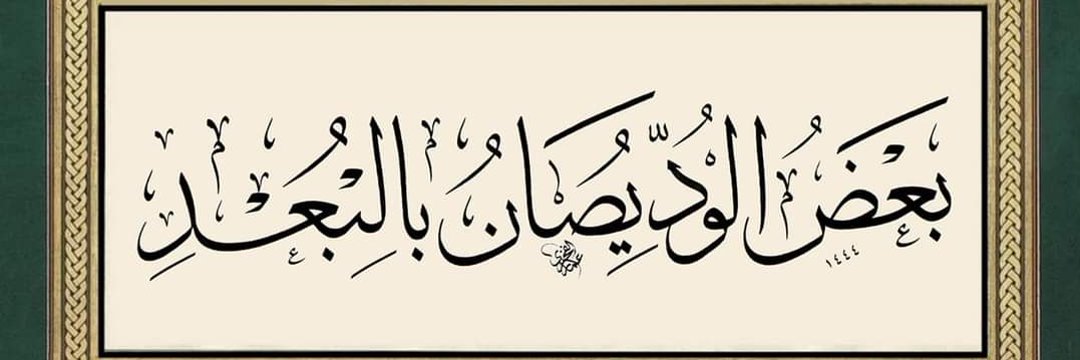 بَعْضُ الْوُدِّ يُصَانُ بِالْبُعْدِ
١٤٤٤